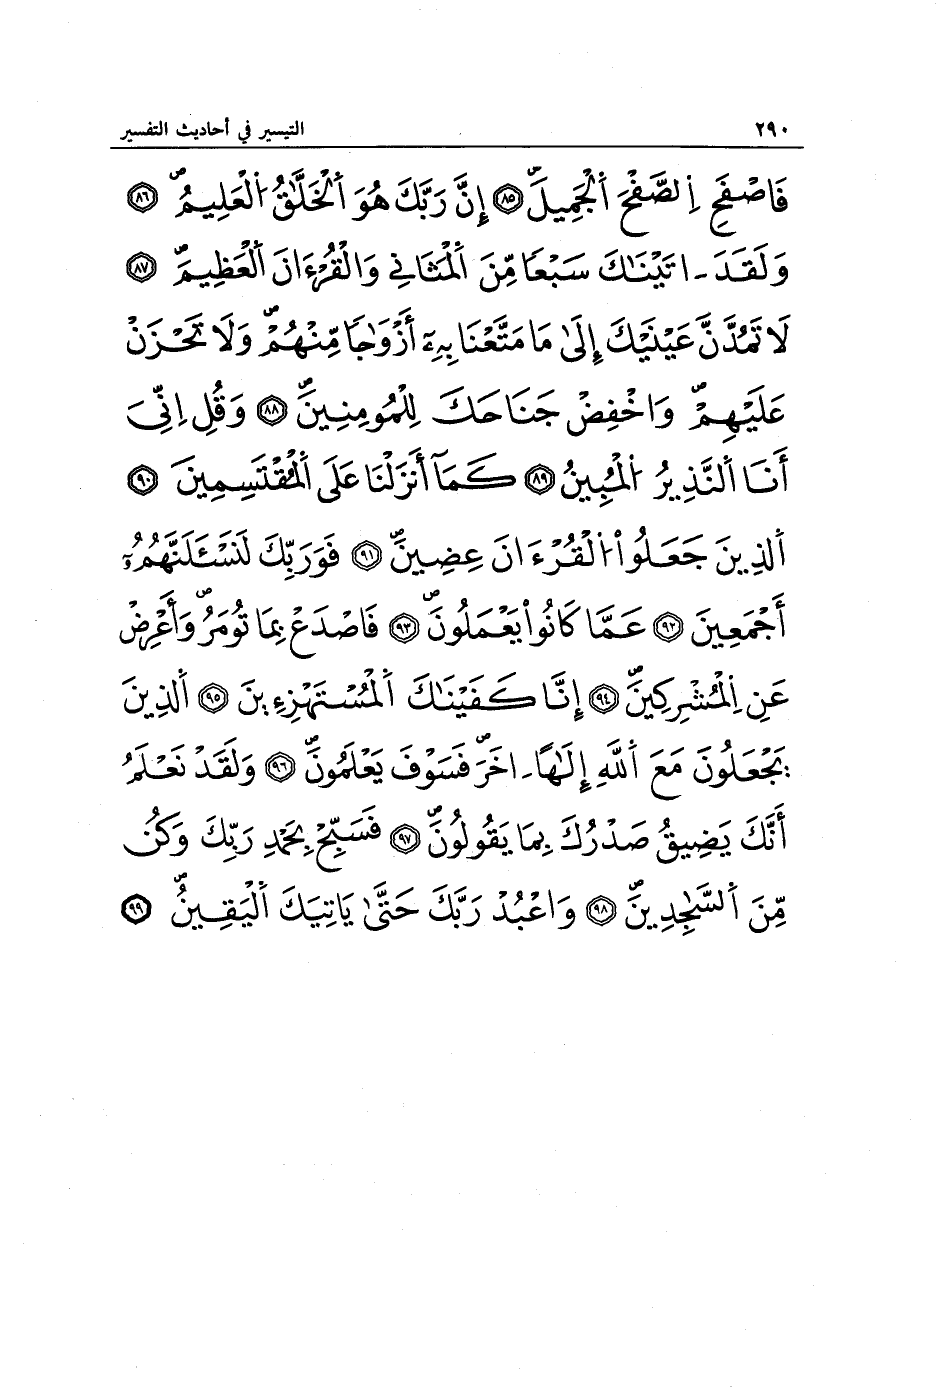 ٢٩٠ التيسير في أحاديث التفسير
فَاصْفَحِ اِ۬لصَّفْحَ اَ۬لْجَمِيلَۖ ٨٥ إِنَّ رَبَّكَ هُوَ اَ۬لْخَلَّٰقُ اُ۬لْعَلِيمُۖ ٨٦
وَلَقَدَ ـ اتَيْنَٰكَ سَبْعاٗ مِّنَ اَ۬لْمَثَانِے وَالْقُرْءَانَ اَ۬لْعَظِيمَۖ ٨٧
لَا تَمُدَّنَّ عَيْنَيْكَ إِلَىٰ مَا مَتَّعْنَا بِهِۦٓ أَزْوَٰجاٗ مِّنْهُمْۖ وَلَا تَحْزَنْ
عَلَيْهِمْۖ وَاخْفِضْ جَنَاحَكَ لِلْمُومِنِينَۖ ٨٨ وَقُلِ اِنِّيَ
أَنَا اَ۬لنَّذِيرُ اُ۬لْمُبِينُ ٨٩ كَمَآ أَنزَلْنَا عَلَى اَ۬لْمُقْتَسِمِينَ ٩٠
اَ۬لذِينَ جَعَلُواْ اُ۬لْقُرْءَانَ عِضِينَۖ ٩١ فَوَرَبِّكَ لَنَسْـَٔلَنَّهُمُۥٓ
أَجْمَعِينَ ٩٢ عَمَّا كَانُواْ يَعْمَلُونَۖ ٩٣ فَاصْدَعْ بِمَا تُومَرُۖ وَأَعْرِضْ
عَنِ اِ۬لْمُشْرِكِينَۖ ٩٤ إِنَّا كَفَيْنَٰكَ اَ۬لْمُسْتَهْزِءِينَ ٩٥ اَ۬لذِينَ
يَجْعَلُونَ مَعَ اَ۬للَّهِ إِلَٰهاً ـ اخَرَۖ فَسَوْفَ يَعْلَمُونَۖ ٩٦ وَلَقَدْ نَعْلَمُ
أَنَّكَ يَضِيقُ صَدْرُكَ بِمَا يَقُولُونَۖ ٩٧ فَسَبِّحْ بِحَمْدِ رَبِّكَ وَكُن
مِّنَ اَ۬لسَّٰجِدِينَۖ ٩٨ وَاعْبُدْ رَبَّكَ حَتَّىٰ يَاتِيَكَ اَ۬لْيَقِينُۖ ٩٩